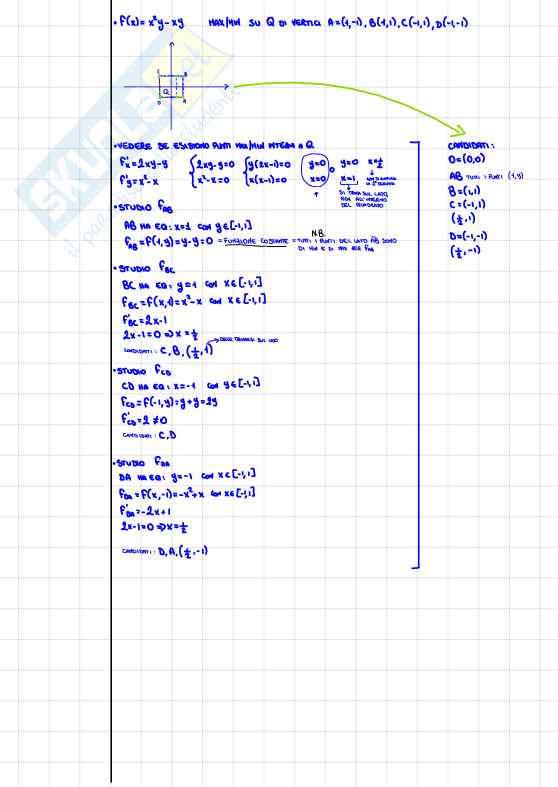 • f(x)= x²y - xy MAX/MIN SU Q DI VERTICI A=(1,-1), B(1,1), C(-1,1), D(-1,-1)
C B
Q
D A
• VEDERE SE ESISTONO PUNTI MAX/MIN INTERNI A Q
f'x = 2xy-y { 2xy-y=0 { y(2x-1)=0 y=0 o y=0 x=1/2
f'y = x²-x { x²-x=0 { x(x-1)=0 x=0 x=1
SI TROVA SUL LATO, NON ALL'INTERNO DEL QUADRATO
• STUDIO fAB
AB HA EQ: x=1 con y∈[-1,1]
N.B.
fAB = f(1,y) = y-y = 0 = FUNZIONE COSTANTE = TUTTI I PUNTI DEL LATO AB SONO
DI MAX E DI MIN PER fAB
• STUDIO fBC
BC HA EQ: y=1 con x∈[-1,1]
fBC = f(x,1) = x²-x con x∈[-1,1]
f'BC = 2x-1
2x-1=0 => x=1/2
CANDIDATI: C, B, (1/2,1)
• STUDIO fCD
CD HA EQ: x=-1 con y∈[-1,1]
fCD = f(-1,y) = y+y = 2y
f'CD = 2 ≠0
CANDIDATI: C,D
• STUDIO fDA
DA HA EQ: y=-1 con x∈[-1,1]
fDA = f(x,-1) = -x²+x con x∈[-1,1]
f'DA = -2x+1
2x-1=0 => x=1/2
CANDIDATI: D,A,(1/2,-1)
CANDIDATI:
O=(0,0)
AB TUTTI I PUNTI (1,y)
B=(1,1)
C=(-1,1)
(1/2,1)
D=(-1,-1)
(1/2,-1)